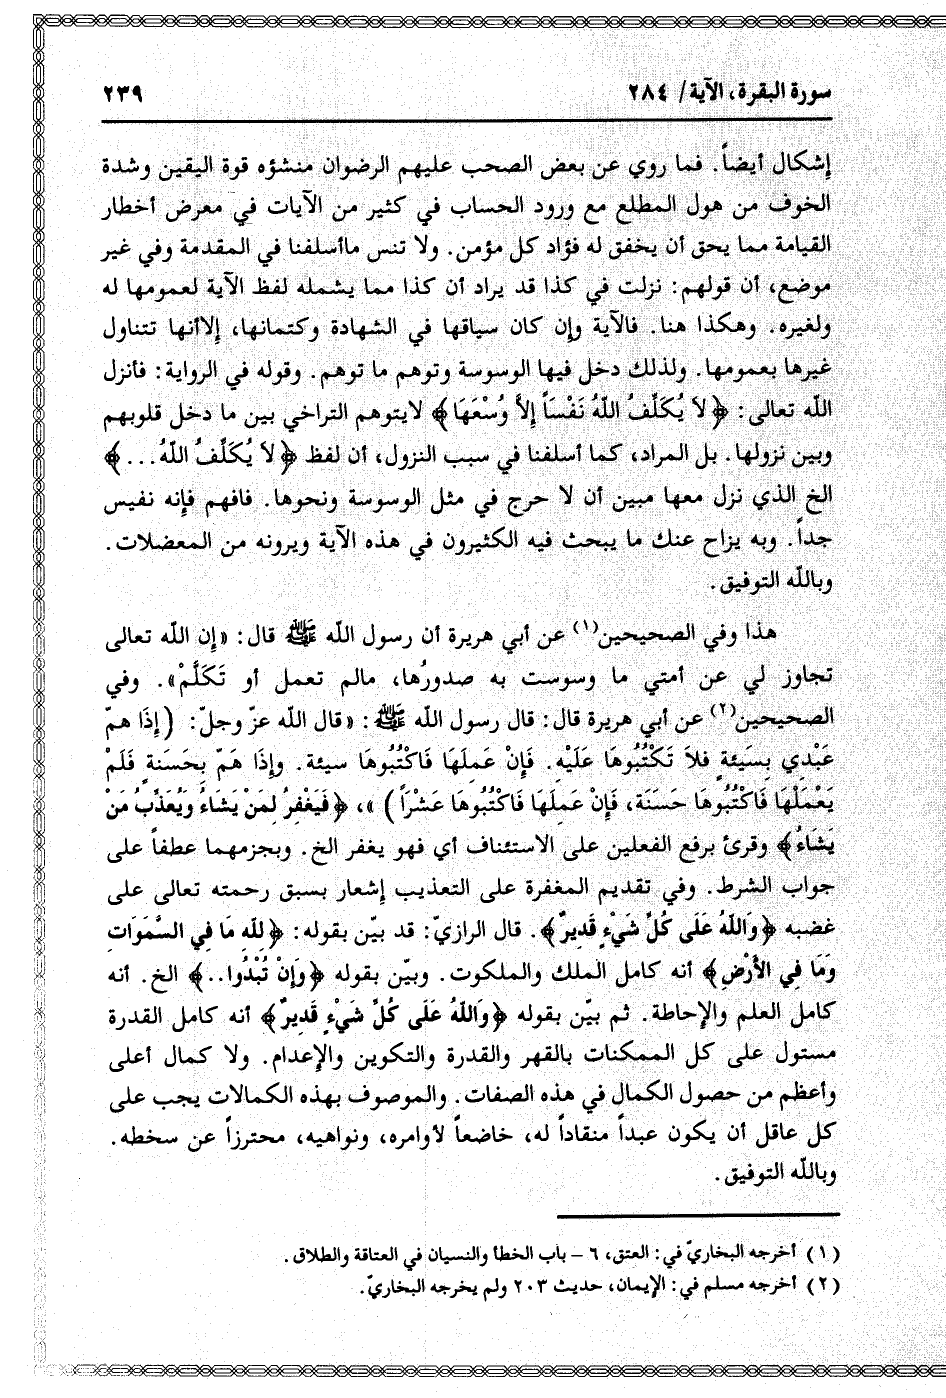 سورة البقرة، الآية/ ٢٨٤
٢٣٩
إشكال أيضاً. فما روي عن بعض الصحب عليهم الرضوان منشؤه قوة اليقين وشدة
الخوف من هول المطلع مع ورود الحساب في كثير من الآيات في معرض أخطار
القيامة مما يحق أن يخفق له فؤاد كل مؤمن. ولا تنس ماأسلفنا في المقدمة وفي غير
موضع، أن قولهم: نزلت في كذا قد يراد أن كذا مما يشمله لفظ الآية لعمومها له
ولغيره. وهكذا هنا. فالآية وإن كان سياقها في الشهادة وكتمانها، إلاأنها تتناول
غيرها بعمومها. ولذلك دخل فيها الوسوسة وتوهم ما توهم. وقوله في الرواية: فأنزل
اللّه تعالى: ﴿لاَ يُكَلِّفُ اللّهُ نَفْسَاً إلاَّ وُسْعَهَا﴾ لايتوهم التراخي بين ما دخل قلوبهم
وبين نزولها. بل المراد، كما أسلفنا في سبب النزول، أن لفظ ﴿لاَ يُكَلِّفُ اللّهُ...﴾
الخ الذي نزل معها مبين أن لا حرج في مثل الوسوسة ونحوها. فافهم فإنه نفيس
جداً. وبه يزاح عنك ما يبحث فيه الكثيرون في هذه الآية ويرونه من المعضلات.
وباللّه التوفيق.
هذا وفي الصحيحين(١) عن أبي هريرة أن رسول اللّه ﷺ قال: «إن اللّه تعالى
تجاوز لي عن أمتي ما وسوست به صدورُها، مالم تعمل أو تَكَلَّمْ». وفي
الصحيحين(٢) عن أبي هريرة قال: قال رسول اللّه ﷺ: «قال اللّه عزّ وجلّ: (إِذَا همّ
عَبْدِي بِسَيئةٍ فلاَ تَكْتُبُوهَا عَلَيْهِ. فَإِنْ عَمِلَهَا فَاكْتُبُوهَا سيئة. وإِذَا همّ بِحَسَنةٍ فَلَمْ
يَعْمَلْهَا فَاكْتُبُوهَا حَسَنَة، فَإِنْ عَمِلَهَا فَاكْتُبُوهَا عَشْرَاً) »، ﴿فَيَغْفِرُ لِمَنْ يَشَاءُ وَيُعَذِّبُ مَنْ
يَشَاءُ﴾ وقرئ برفع الفعلين على الاستئناف أي فهو يغفر الخ. وبجزمهما عطفاً على
جواب الشرط. وفي تقديم المغفرة على التعذيب إشعار بسبق رحمته تعالى على
غضبه ﴿وَاللّهُ عَلَى كُلِّ شَيْءٍ قَدِيرٌ﴾. قال الرازيّ: قد بيّن بقوله: ﴿للّهِ مَا فِي السَّمَوَاتِ
وَمَا فِي الأَرْضِ﴾ أنه كامل الملك والملكوت. وبيّن بقوله ﴿وَإنْ تُبْدُوا..﴾ الخ. أنه
كامل العلم والإحاطة. ثم بيّن بقوله ﴿وَاللّهُ عَلَى كُلِّ شَيْءٍ قَدِيرٌ﴾ أنه كامل القدرة
مستول على كل الممكنات بالقهر والقدرة والتكوين والإعدام. ولا كمال أعلى
وأعظم من حصول الكمال في هذه الصفات. والموصوف بهذه الكمالات يجب على
كل عاقل أن يكون عبداً منقاداً له، خاضعاً لأوامره، ونواهيه، محترزاً عن سخطه.
وباللّه التوفيق.
(١) أخرجه البخاريّ في: العتق، ٦ – باب الخطأ والنسيان في العتاقة والطلاق.
(٢) أخرجه مسلم في: الإيمان، حديث ٢٠٣ ولم يخرجه البخاريّ.